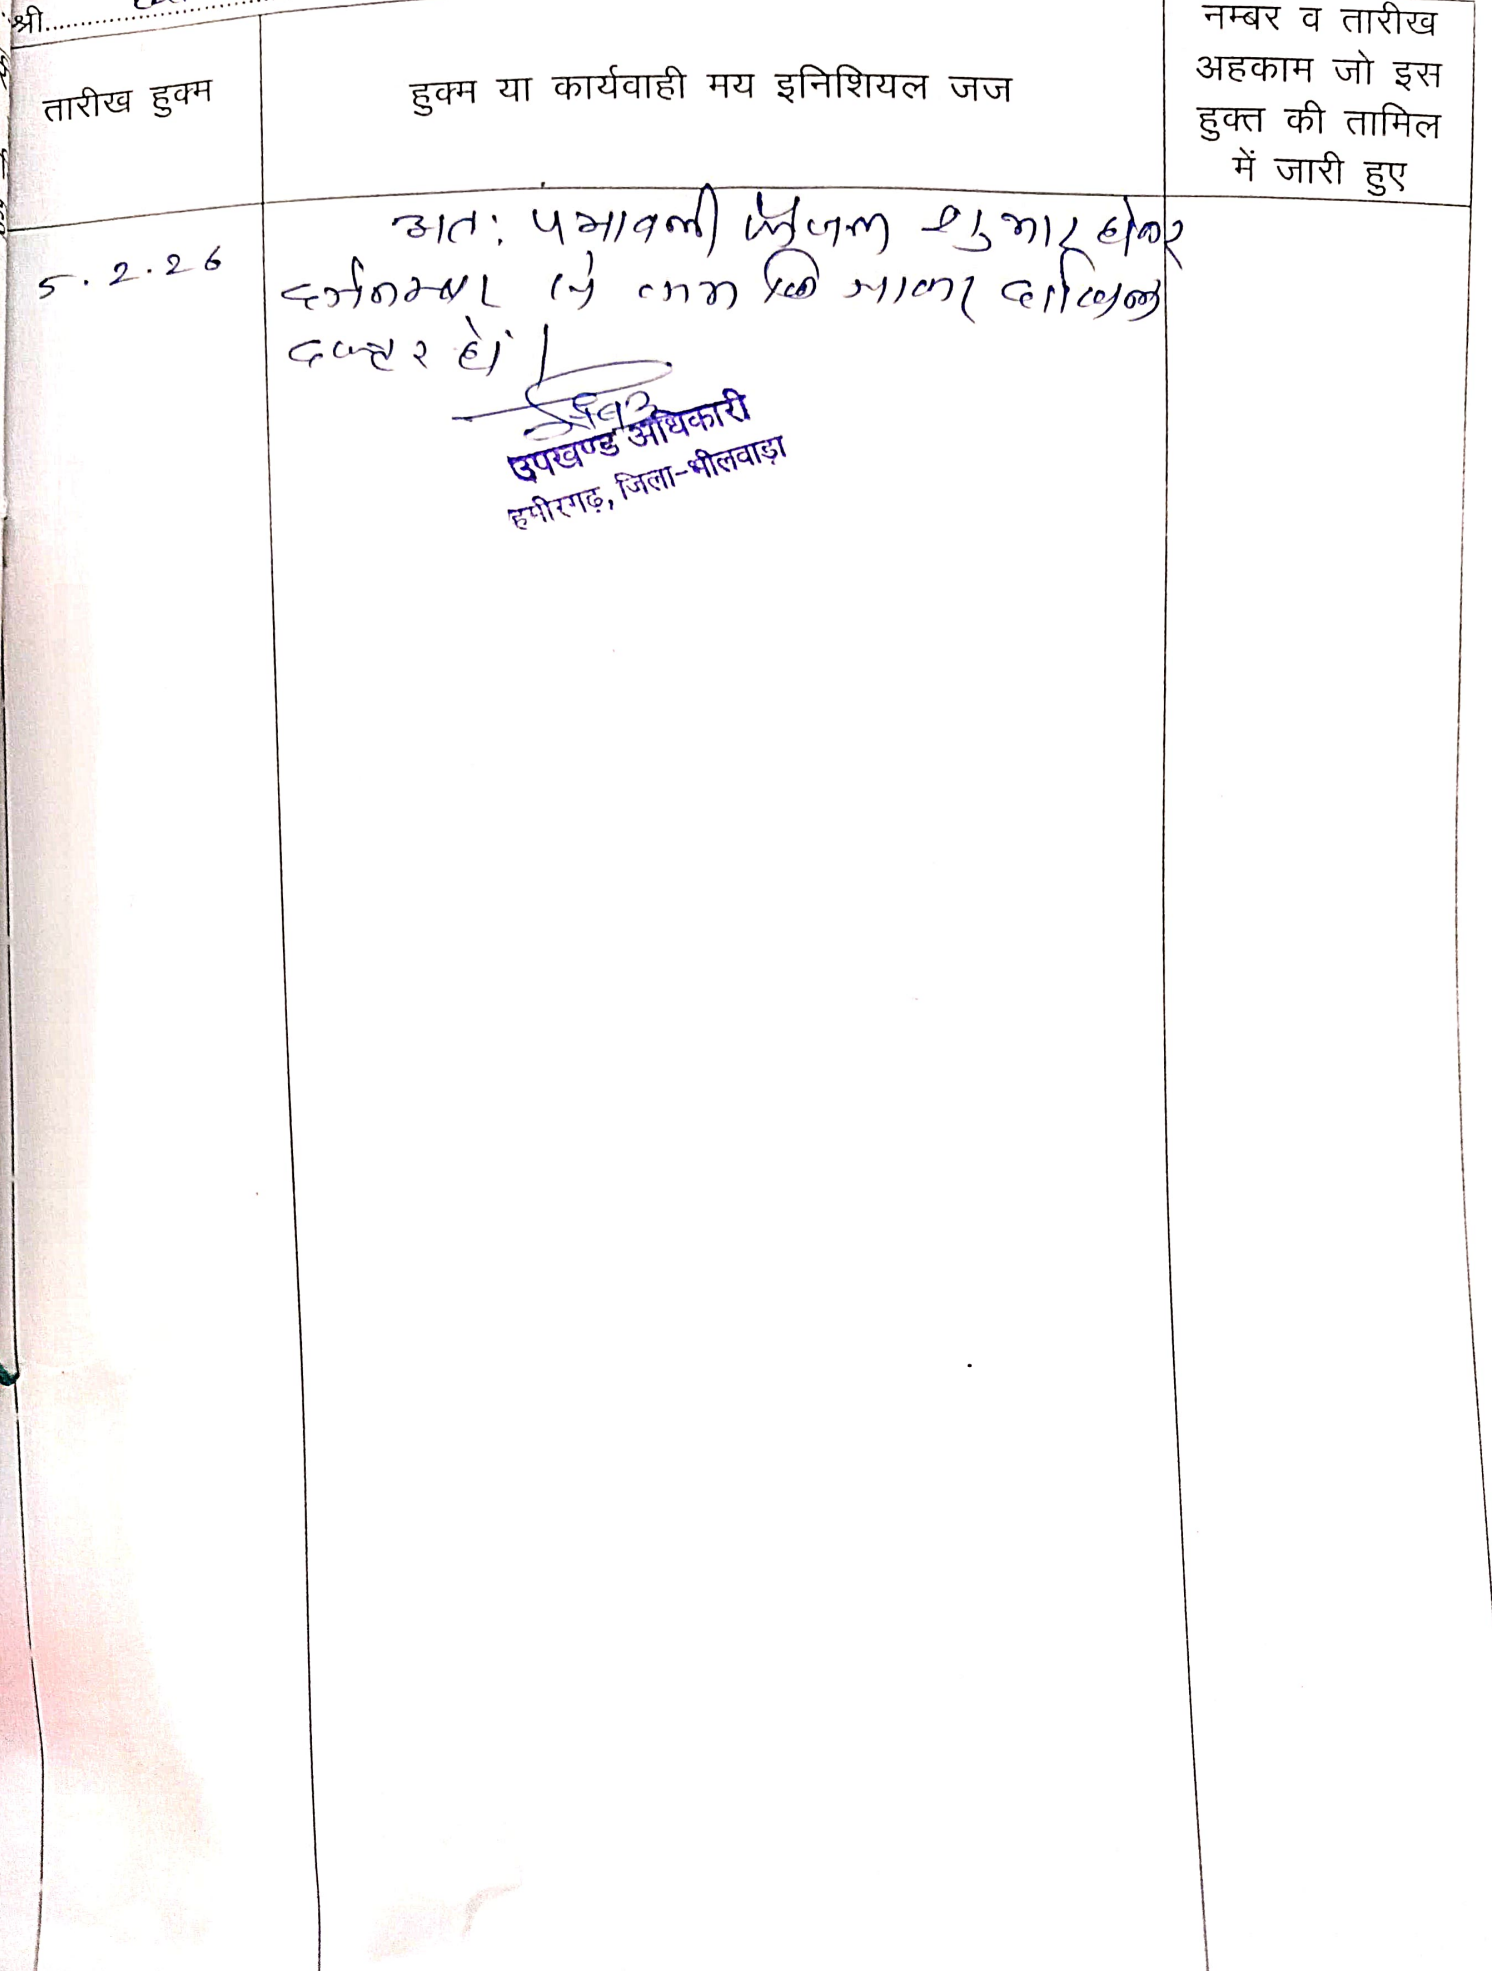 श्री
तारीख हुक्म
हुक्म या कार्यवाही मय इनिशियल जज
नम्बर व तारीख
अहकाम जो इस
हुक्त की तामिल
में जारी हुए
5.2.26
अतः पत्रावली फैसल शुमार होकर
दर्ज नम्बर से कम की जाकर दाखिल
दफ्तर हो।
उपखण्ड अधिकारी
हमीरगढ़, जिला-भीलवाड़ा